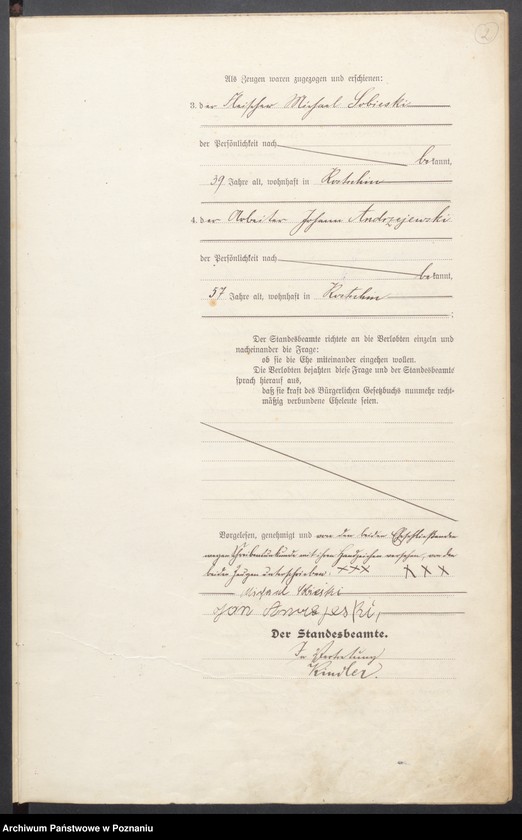 2
Als Zeugen waren zugezogen und erschienen:
3. der Fleischer Michael Sobieski
der Persönlichkeit nach
bekannt,
39 Jahre alt, wohnhaft in Kostschin
4. der Arbeiter Johann Andrzejewski
der Persönlichkeit nach
bekannt,
57 Jahre alt, wohnhaft in Kostschin
;
Der Standesbeamte richtete an die Verlobten einzeln und
nacheinander die Frage:
ob sie die Ehe miteinander eingehen wollen.
Die Verlobten bejahten diese Frage und der Standesbeamte
sprach hierauf aus,
daß sie kraft des Bürgerlichen Gesetzbuchs nunmehr recht-
mäßig verbundene Eheleute seien.
Vorgelesen, genehmigt und von den beiden Eheschließenden
wegen Schreibensunkunde mit ihren Handzeichen versehen, von den
beiden Zeugen unterschrieben: XXX XXX
Jan
Der Standesbeamte.
In Vertretung
Kindler.
Archiwum Państwowe w Poznaniu